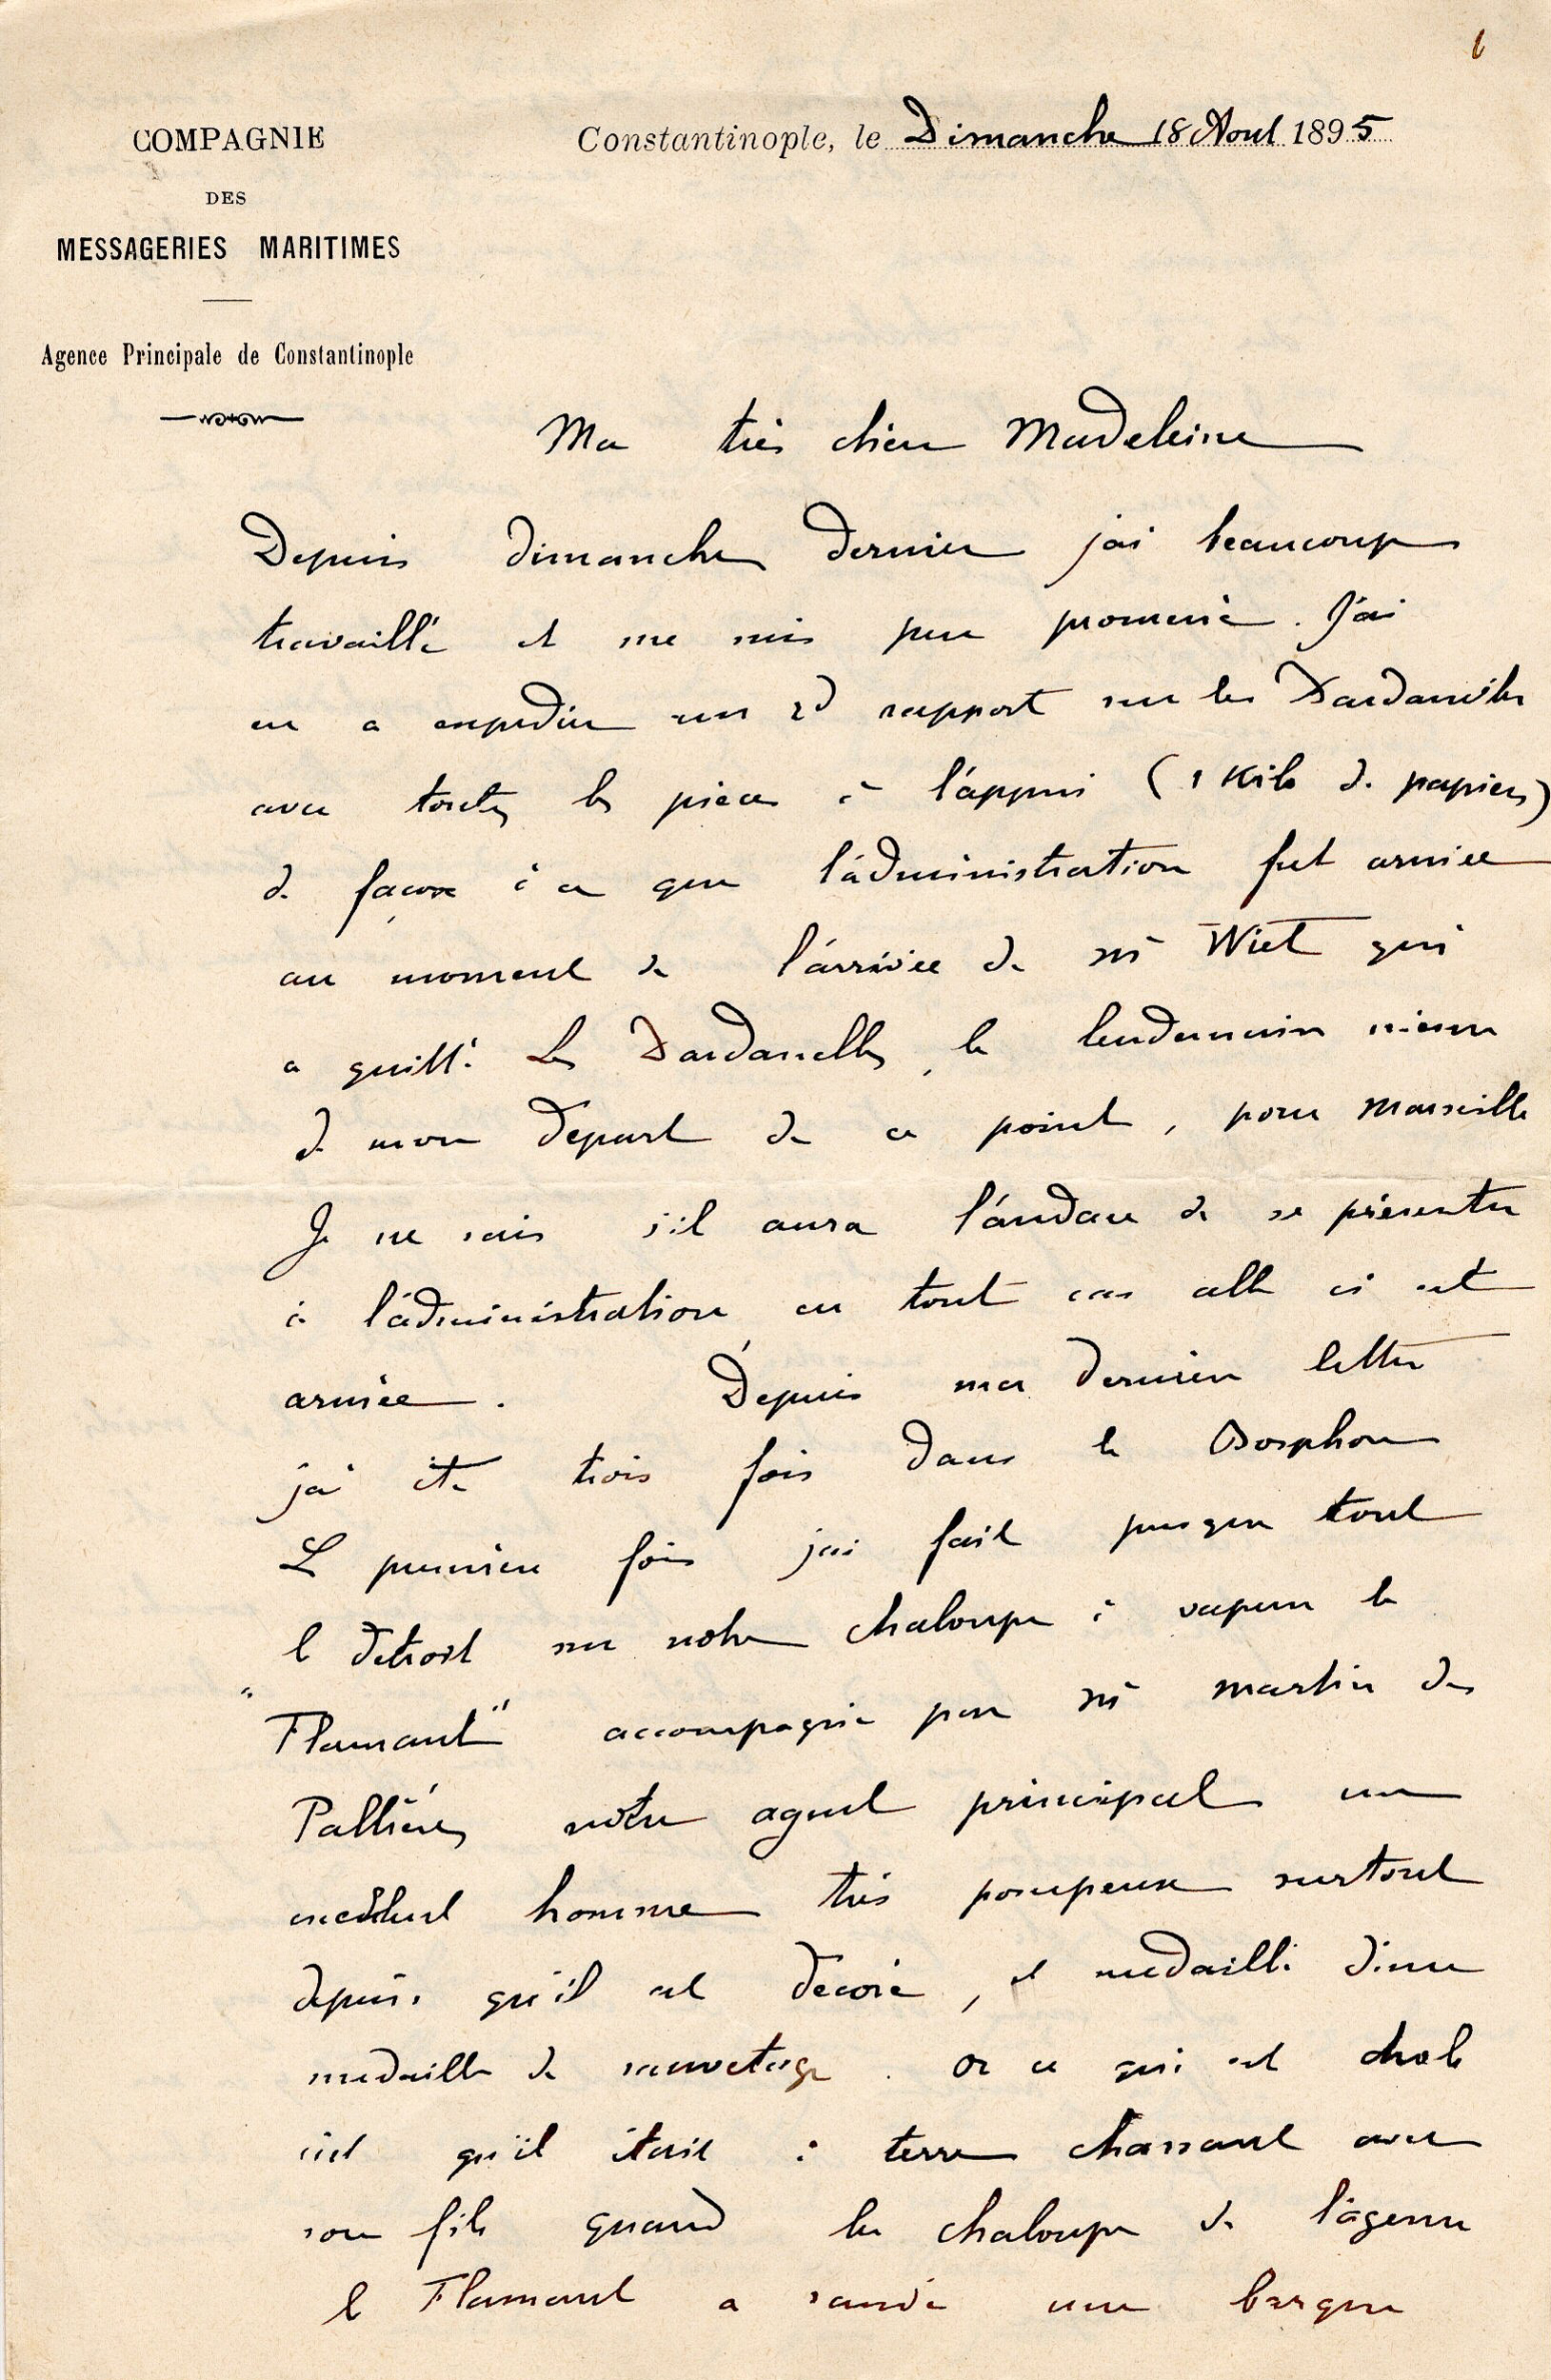 1
COMPAGNIE
DES
MESSAGERIES MARITIMES
Agence Principale de Constantinople
Constantinople, le Dimanche 18 Aout 1895
Ma très chère Madeleine
Depuis dimanche dernier j'ai beaucoup
travaillé et me suis peu promené. J'ai
eu a expedier un 2d rapport sur les Dardanelles
avec toutes les pieces à l'appui (1 Kilo de papiers)
de façon à ce que l'administration fut armée
au moment de l'arrivée de Mr Wiet qui
a quitté Les Dardanelles, le lendemain même
de mon départ de ce point, pour Marseille
Je ne sais s'il aura l'audace de se présenter
à l'administration en tout cas elle ci est
armée. Depuis ma derniere lettre
j'ai été trois fois dans le Bosphore
La premiere fois j'ai fait presque tout
le detroit sur notre chaloupe à vapeur le
"Flamant" accompagné par Mr Martin des
Pallières notre agent principal un
excellent homme très pompeux surtout
depuis qu'il est decoré, et medaillé d'une
medaille de sauvetage. Or ce qui est drole
c'est qu'il était à terre chassant avec
son fils quand la chaloupe de l'agence
le Flamant a sauvé une barque